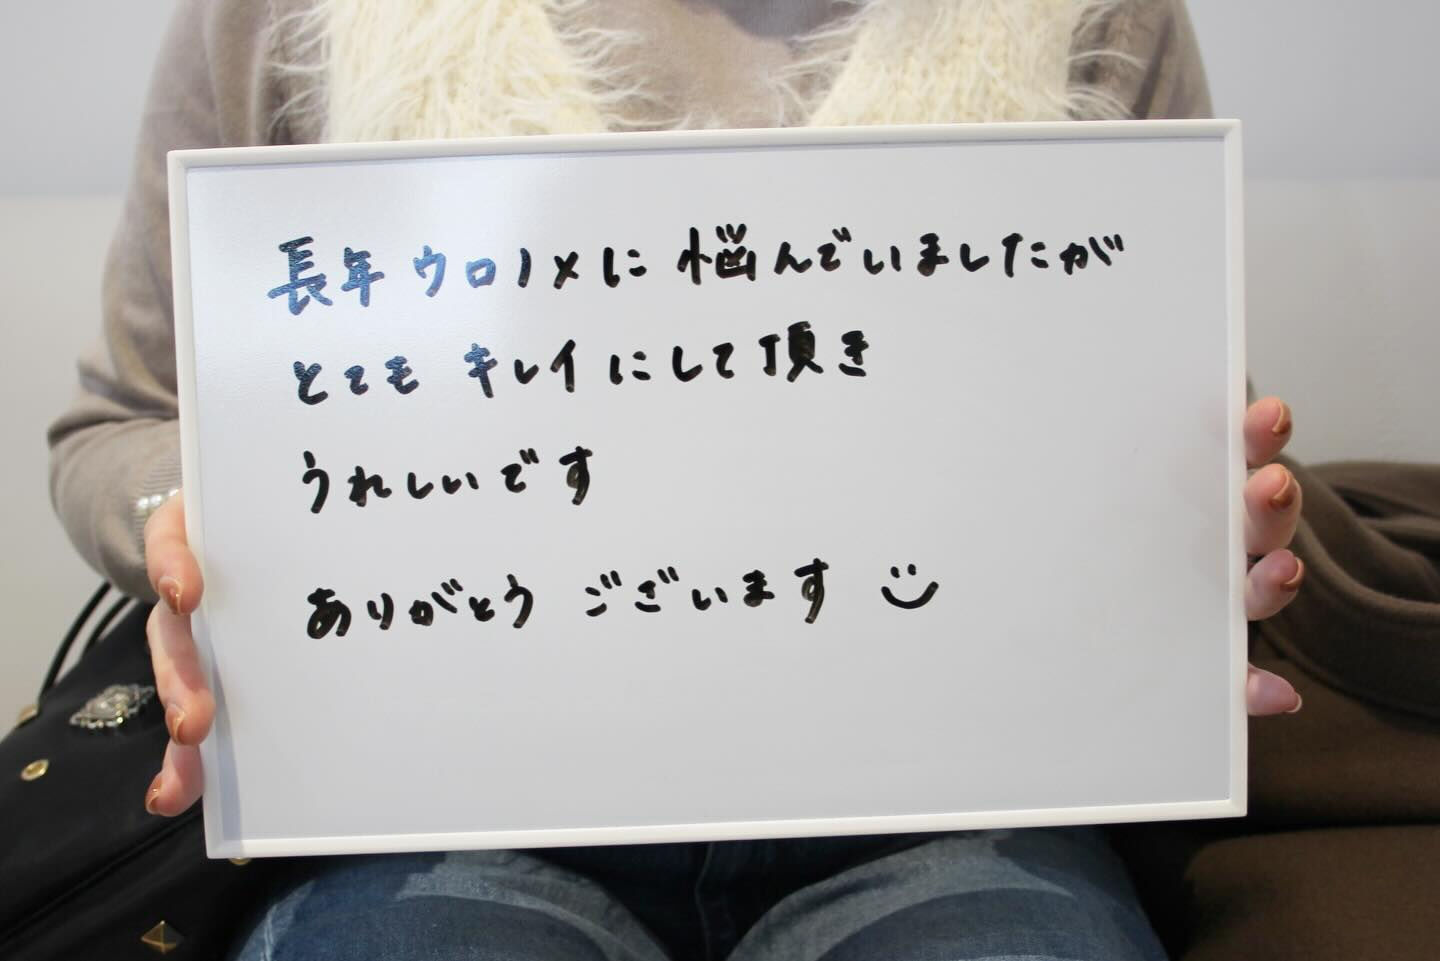 長年 ウロノメに 悩んでいましたが
とても キレイにして頂き
うれしいです
ありがとう ございます